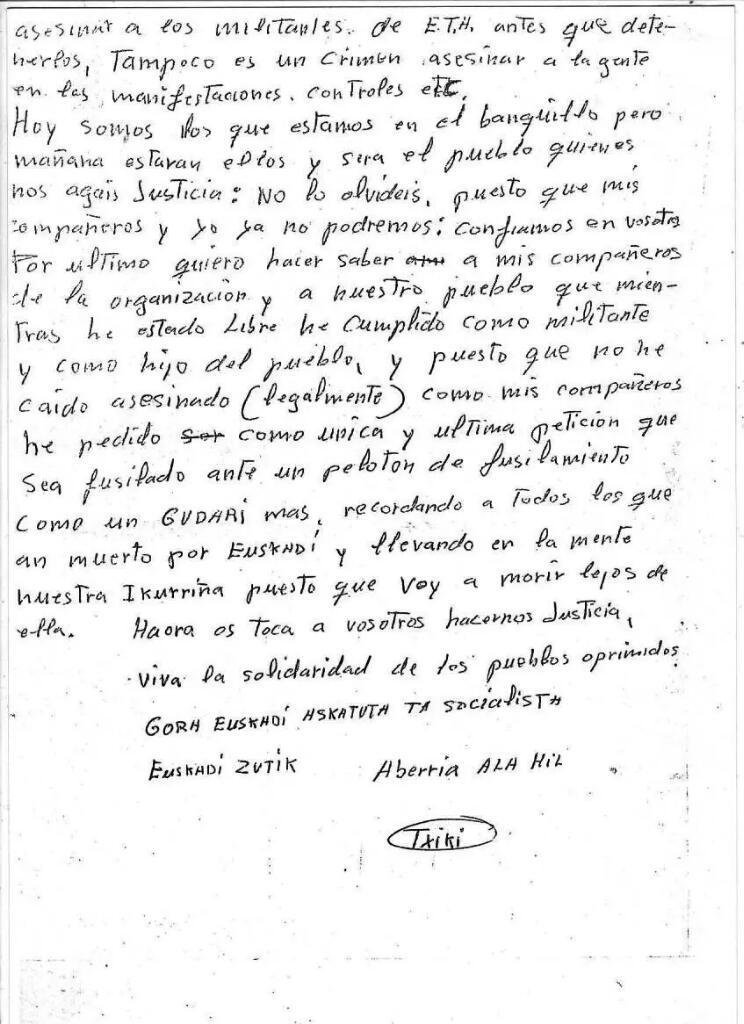 asesinar a los militantes. de E.T.A. antes que dete-
nerlos, Tampoco es un crimen asesinar a la gente
en las manifestaciones. controles etc.
Hoy somos los que estamos en el banquillo pero
mañana estaran ellos y sera el pueblo quienes
nos agais Justicia: No lo olvideis, puesto que mis
compañeros y yo ya no podremos: confiamos en vosotros
Por ultimo quiero hacer saber a mis compañeros
de la organización y a nuestro pueblo que mien-
tras he estado Libre he Cumplido como militante
y como hijo del pueblo, y puesto que no he
caido asesinado (legalmente) como mis compañeros
he pedido ser como unica y ultima petición que
Sea fusilado ante un peloton de fusilamiento
como un GUDARI mas, recordando a Todos los que
an muerto por EUSKADI y llevando en la mente
nuestra Ikurriña puesto que voy a morir lejos de
ella. Haora os toca a vosotros hacernos Justicia,
viva la solidaridad de los pueblos oprimidos
GORA EUSKADI ASKATUTA TA SOCIALISTA
EUSKADI ZUTIK Aberria ALA HIL
Txiki